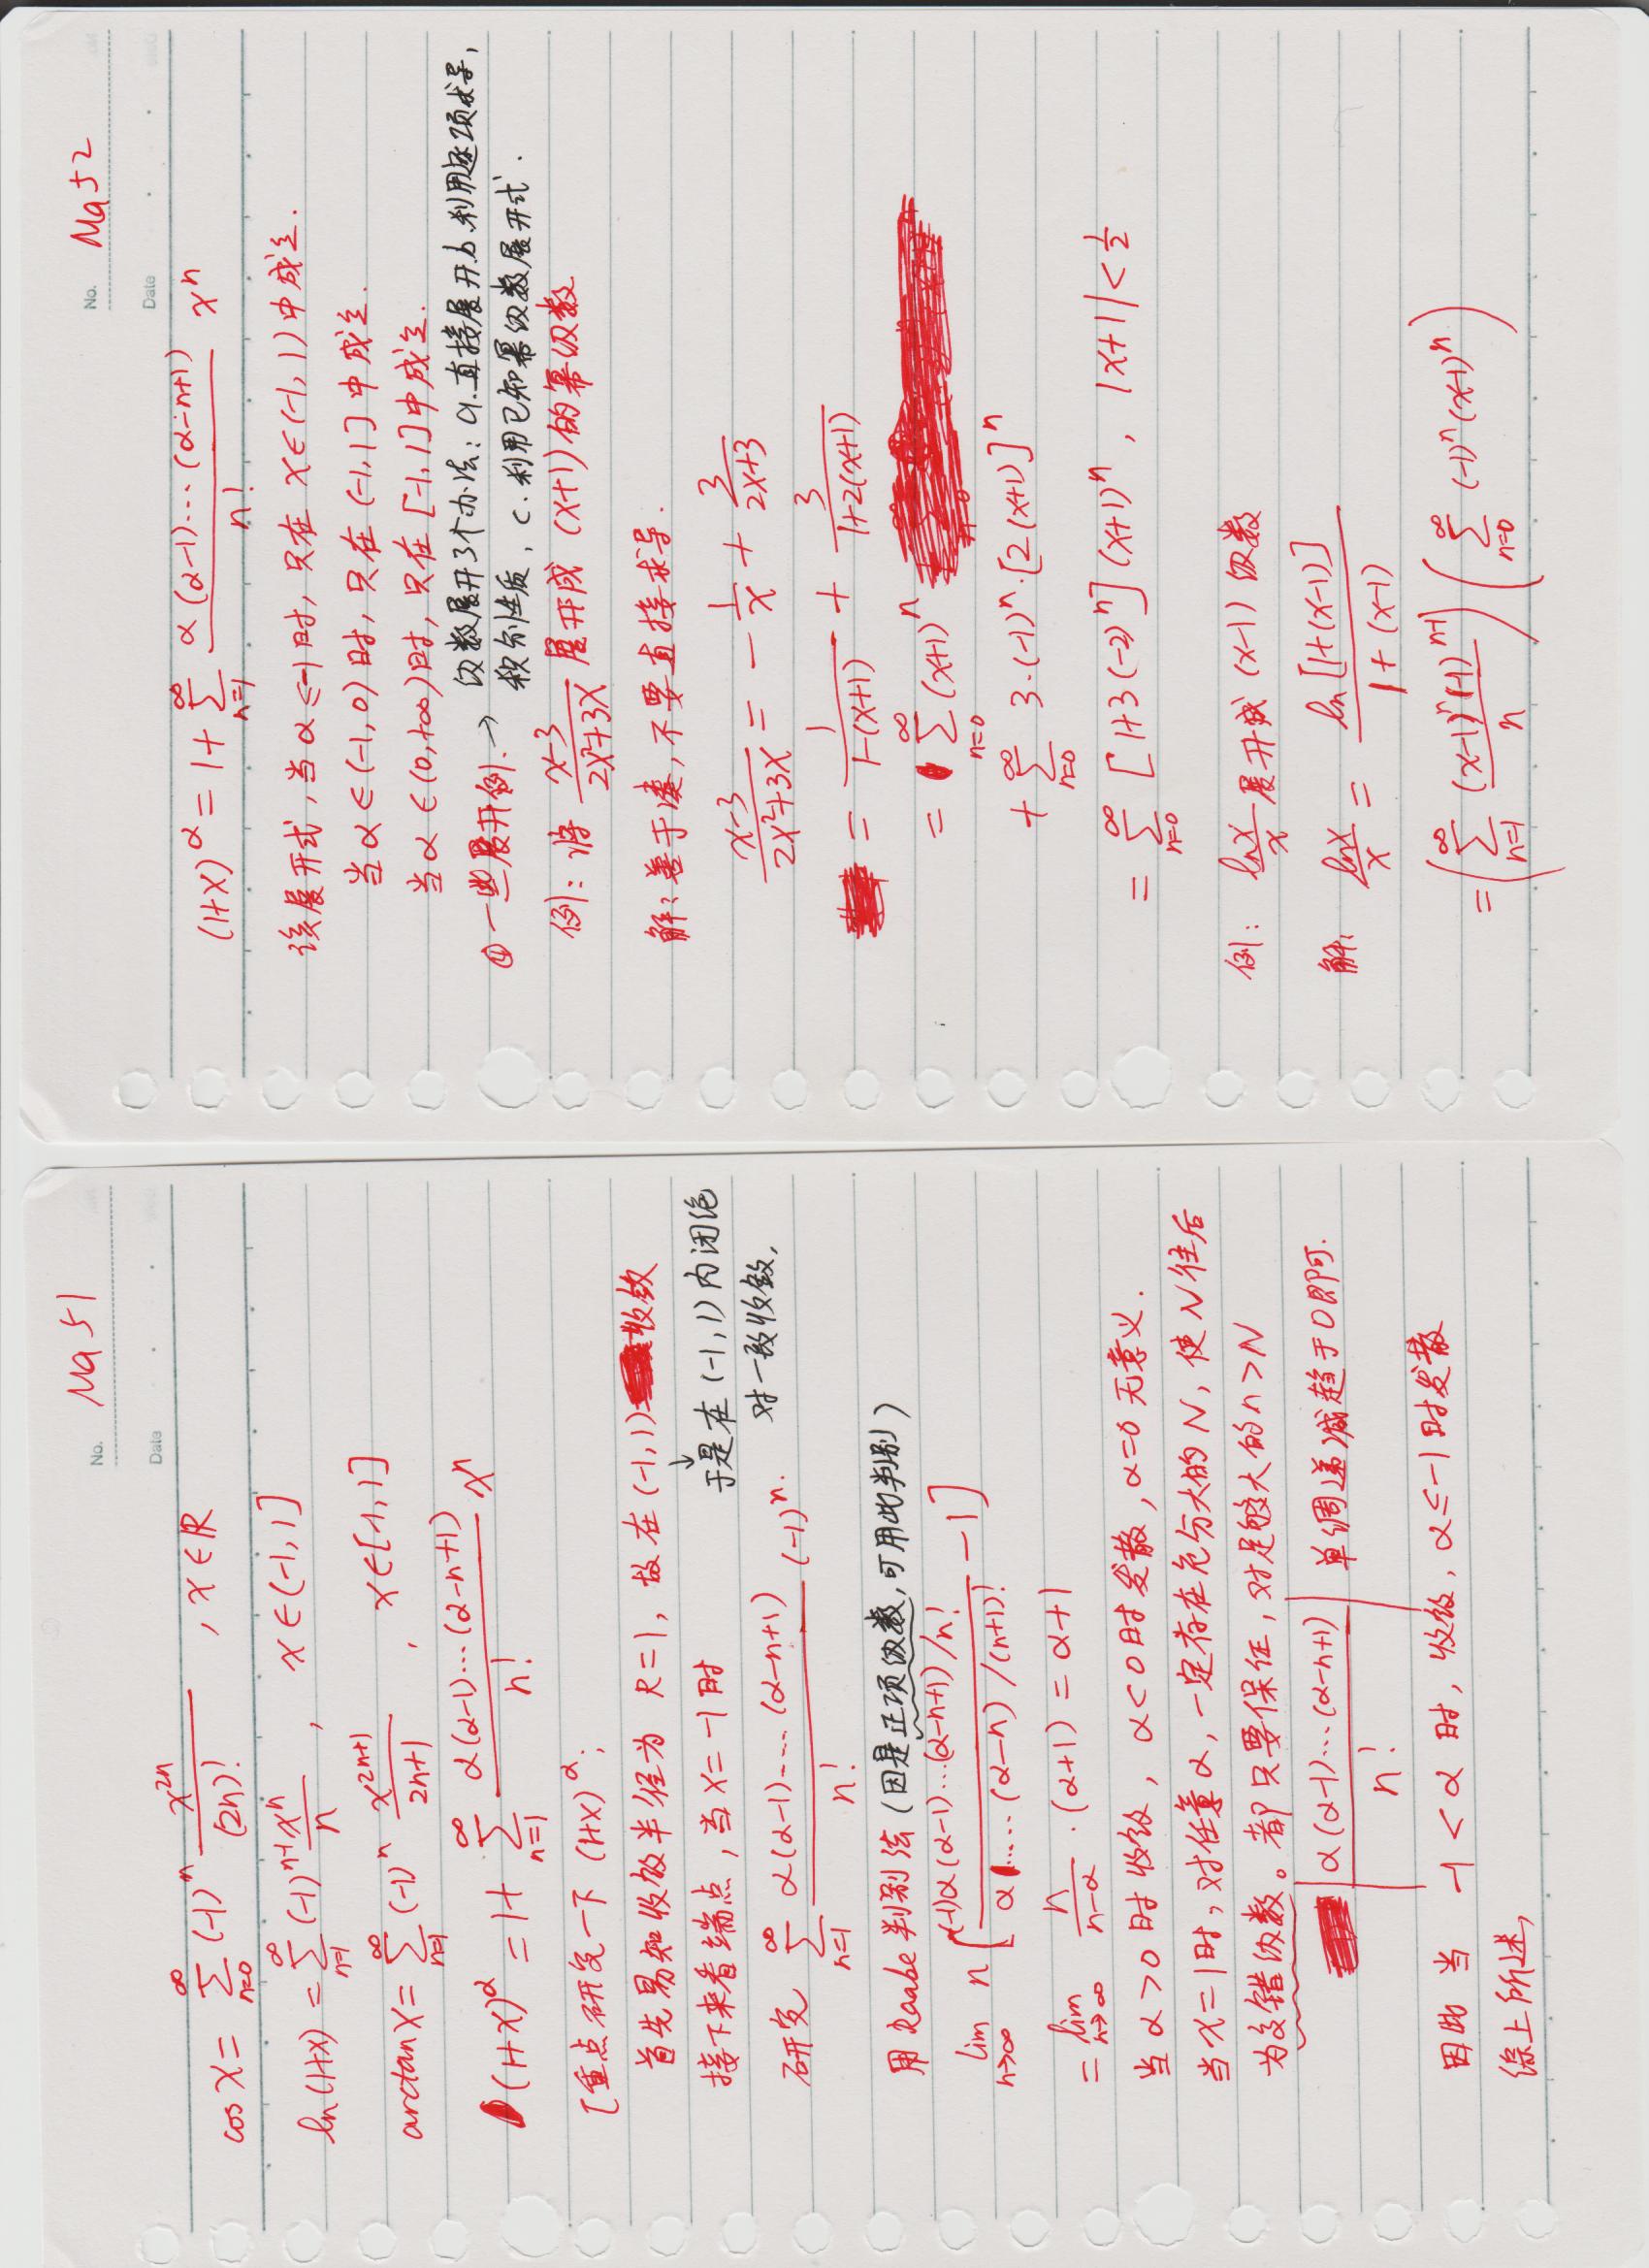 No. Ma 51
Date
cos x = ∑_{n=0}^{∞} (-1)^n x^{2n}/(2n)! , x∈ℝ
ln(1+x) = ∑_{n=1}^{∞} (-1)^{n-1} x^n/n , x∈(-1,1]
arctan x = ∑_{n=1}^{∞} (-1)^n x^{2n+1}/(2n+1) , x∈[-1,1]
(1+x)^α = 1+ ∑_{n=1}^{∞} α(α-1)⋯(α-n+1)/n! x^n
[重点研究一下 (1+x)^α;
首先易知收敛半径为 R=1, 故在(-1,1)收敛
↓
接下来看端点, 当 x=-1时
于是在(-1,1)内闭绝
对一致收敛,
研究 ∑_{n=1}^{∞} α(α-1)⋯(α-n+1)/n! (-1)^n.
用 Raabe 判别法 (因是正项级数, 可用此判别)
lim_{n→∞} n[ (-1)α(α-1)⋯(α-n+1)/n! / α⋯⋯(α-n)/(n+1)! -1]
= lim_{n→∞} n/(n-α) ·(α+1) = α+1
当α>0时收敛, α<0时发散, α=0无意义.
当x=1时, 对任意α, 一定存在充分大的N, 使N往后
为交错级数。都只要保证, 对足够大的n>N
|α(α-1)⋯(α-n+1)/n!| 单调递减趋于0即可.
因此当 -1<α 时, 收敛, α≤-1时发散
综上所述,
No. Ma 52
Date
(1+x)^α = 1+ ∑_{n=1}^{∞} α(α-1)⋯(α-n+1)/n! x^n
该展开式, 当α≤-1时, 只在 x∈(-1,1)中成立.
当α∈(-1,0)时, 只在(-1,1]中成立.
当α∈(0,+∞)时, 只在[-1,1]中成立.
④ 一些展开例. → 级数展开3个办法: a.直接展开.b.利用逐项求导,
积分性质, c.利用已知幂级数展开式.
例: 将 (x-3)/(2x²+3x) 展开成 (x+1)的幂级数
解: 善于凑, 不要直接求导.
(x-3)/(2x²+3x) = -1/x + 3/(2x+3)
= 1/(1-(x+1)) + 3/(1+2(x+1))
= ∑_{n=0}^{∞} (x+1)^n
+ ∑_{n=0}^{∞} 3·(-1)^n·[2(x+1)]^n
= ∑_{n=0}^{∞} [1+3(-2)^n](x+1)^n, |x+1|<1/2
例: lnx/x 展开成 (x-1) 级数
解: lnx/x = ln[1+(x-1)]/(1+(x-1))
= (∑_{n=1}^{∞} (x-1)^n(-1)^{n-1}/n) (∑_{n=0}^{∞} (-1)^n(x-1)^n)